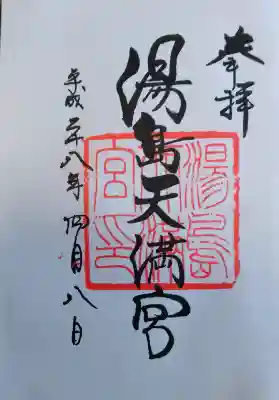 奉拝
湯島天満宮
平成二十八年四月八日
湯島
天満
宮印